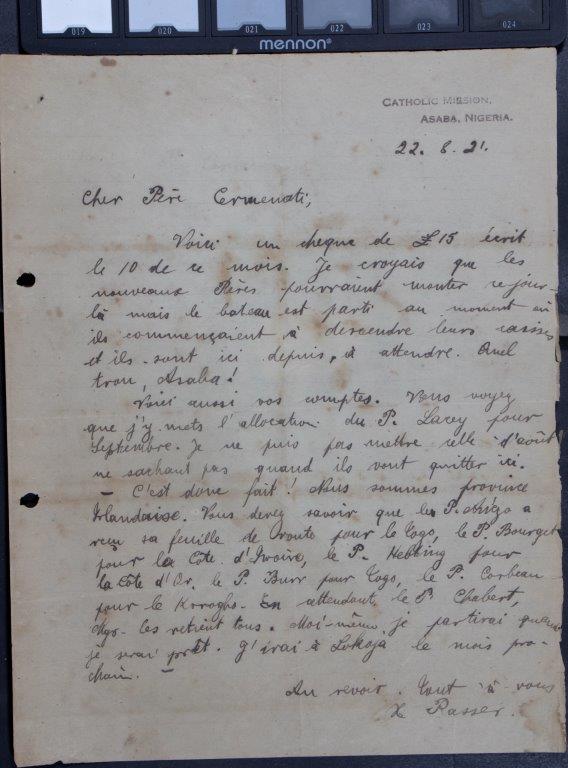 019 020 021 022 023 024
mennon®
CATHOLIC MISSION,
ASABA, NIGERIA.
22. 8. 21.
Cher Père Cermenati,
Voici un cheque de £15 écrit
le 10 de ce mois. Je croyais que les
nouveaux Pères pourraient monter ce jour-
là mais le bateau est parti au moment où
ils commençaient à descendre leurs caisses
et ils sont ici depuis, à attendre. Quel
trou, Asaba!
Voici aussi vos comptes. Vous voyez
que j'y mets l'allocation du P. Lacey pour
Septembre. Je ne puis pas mettre celle d'août
ne sachant pas quand ils vont quitter ici.
— C'est donc fait! Nous sommes province
Irlandaise. Vous devez savoir que le P.
reçu sa feuille de route pour le Togo, le P. Bourget
pour la Côte d'Ivoire, le P. Hebting pour
la Côte d'Or, le P. Burr pour Togo, le P. Corbeau
pour le Korogho. En attendant, le P. Chabert,
les retient tous. Moi-même je partirai quand
je serai prêt. J'irai à Lokoja le mois pro-
chain. —
Au revoir. Tout à vous
Rasser.